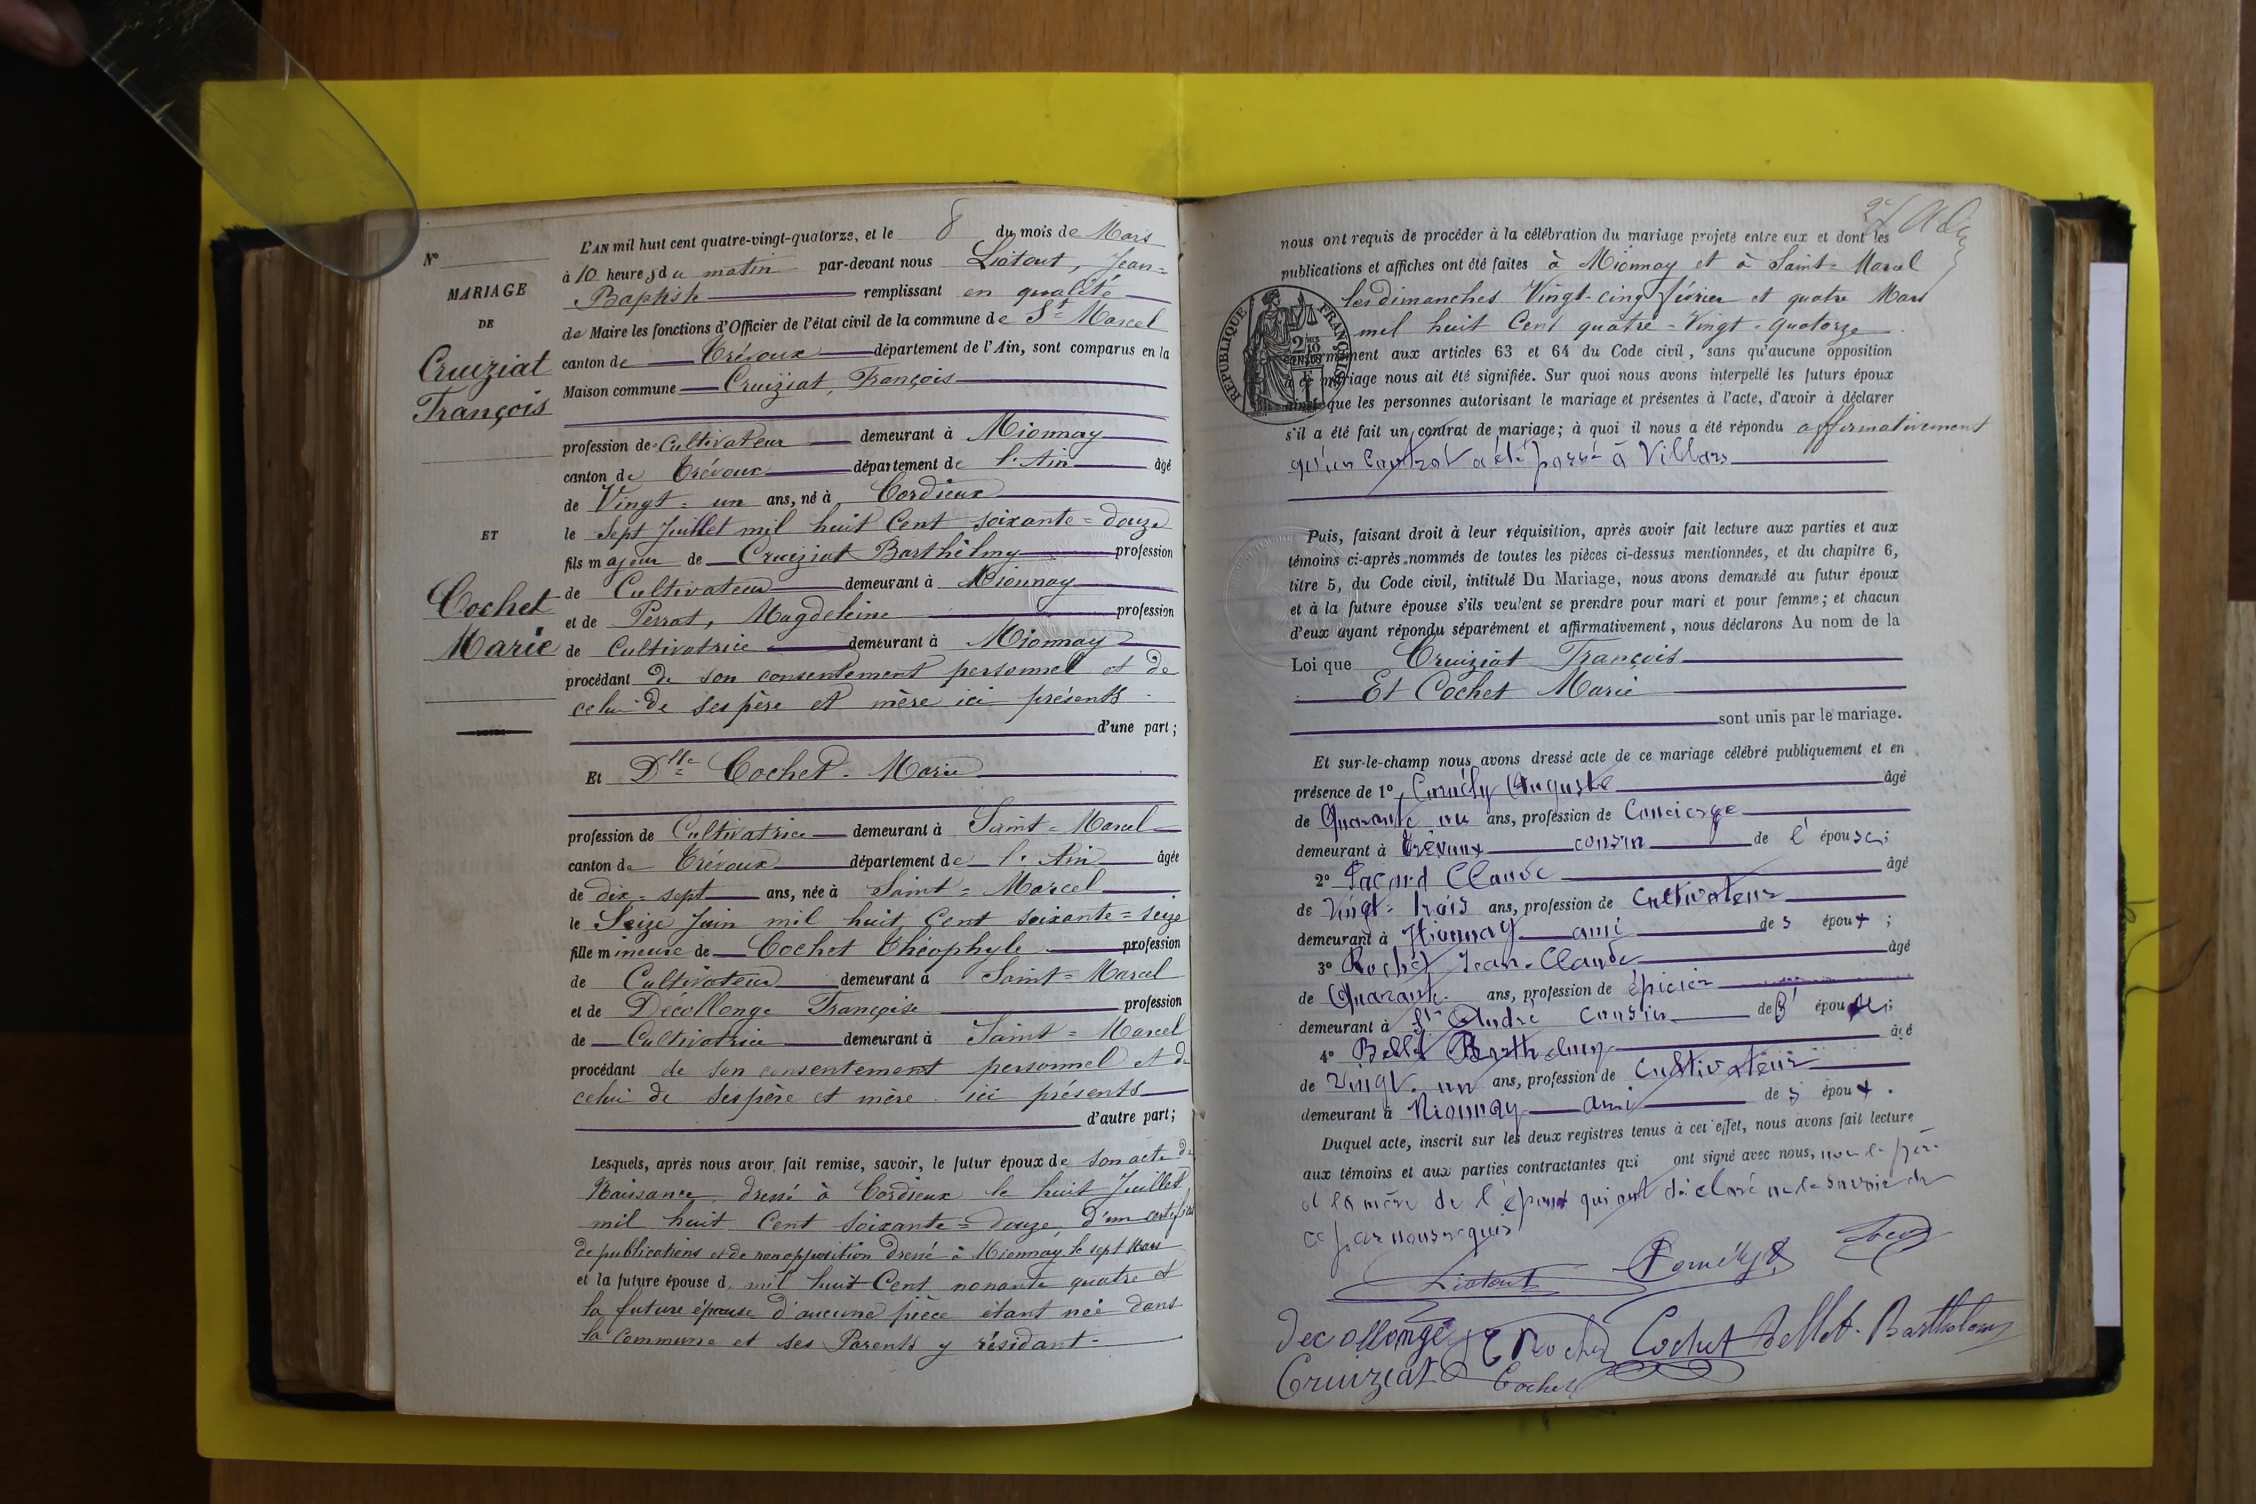 N°
MARIAGE
DE
Cruiziat
François
ET
Cochet
Marie
L'AN mil huit cent quatre-vingt-quatorze, et le 8 du mois de Mars
à 10 heures du matin par-devant nous Liatout, Jean=
Baptiste remplissant en qualité
de Maire les fonctions d'Officier de l'état civil de la commune de St Marcel
canton de Trévoux département de l'Ain, sont comparus en la
Maison commune Cruiziat, François
profession de Cultivateur demeurant à Mionnay
canton de Trévoux département de l'Ain âgé
de Vingt=un ans, né à Cordieux
le Sept Juillet mil huit Cent soixante=douze
fils majeur de Cruiziat Barthélmy profession
de Cultivateur demeurant à Mionnay
et de Perrat, Magdeleine profession
de Cultivatrice demeurant à Mionnay
procédant de son consentement personnel et de
celui de ses père et mère ici présents
d'une part;
Et Dlle Cochet. Marie
profession de Cultivatrice demeurant à Saint=Marcel
canton de Trévoux département de l'Ain âgée
de dix=sept ans, née à Saint=Marcel
le Seize Juin mil huit Cent soixante=seize
fille mineure de Cochet Théophyle profession
de Cultivateur demeurant à Saint=Marcel
et de Décollonge Françoise profession
de Cultivatrice demeurant à Saint=Marcel
procédant de son consentement personnel et de
celui de ses père et mère ici présents
d'autre part;
Lesquels, après nous avoir fait remise, savoir, le futur époux de son acte de
Naissance dressé à Cordieux le huit Juillet
mil huit Cent soixante=douze, d'un certificat
de publications et de non opposition dressé à Mionnay le sept Mars
et la future épouse d mil huit Cent nonante quatre et
la future épouse d'aucune pièce étant née dans
la Commune et ses Parents y résidant=
nous ont requis de procéder à la célébration du mariage projeté entre eux et dont les
publications et affiches ont été faites à Mionnay et à Saint=Marcel
les dimanches Vingt-cinq février et quatre Mars
mil huit Cent quatre=Vingt-quatorze
conformément aux articles 63 et 64 du Code civil, sans qu'aucune opposition
à ce mariage nous ait été signifiée. Sur quoi nous avons interpellé les futurs époux
ainsi que les personnes autorisant le mariage et présentes à l'acte, d'avoir à déclarer
s'il a été fait un contrat de mariage; à quoi il nous a été répondu affirmativement
qu'un Contrat a été passé à Villars
RÉPUBLIQUE FRANÇAISE
Puis, faisant droit à leur réquisition, après avoir fait lecture aux parties et aux
témoins ci-après nommés de toutes les pièces ci-dessus mentionnées, et du chapitre 6,
titre 5, du Code civil, intitulé Du Mariage, nous avons demandé au futur époux
et à la future épouse s'ils veulent se prendre pour mari et pour femme; et chacun
d'eux ayant répondu séparément et affirmativement, nous déclarons Au nom de la
Loi que Cruiziat François
Et Cochet Marie
sont unis par le mariage.
Et sur-le-champ nous avons dressé acte de ce mariage célébré publiquement et en
présence de 1°, Auguste âgé
de Quarante un ans, profession de Concierge
demeurant à Trévoux cousin de l' épouse;
2° Pacard Claude âgé
de Vingt-trois ans, profession de Cultivateur
demeurant à Mionnay ami de s époux;
3° Rochet Jean-Claude âgé
de Quarante ans, profession de épicier
demeurant à St André cousin de l' épouse;
4° Bellet Barthelmy âgé
de vingt-un ans, profession de Cultivateur
demeurant à Mionnay ami de s époux.
Duquel acte, inscrit sur les deux registres tenus à cet effet, nous avons fait lecture
aux témoins et aux parties contractantes qui ont signé avec nous, non le père
et la mère de l'époux qui ont déclaré ne le savoir de
ce par nous requis
Liatout
Decollonge Rochet Cochet Bellet-Barthelmy
Cruiziat Cochet